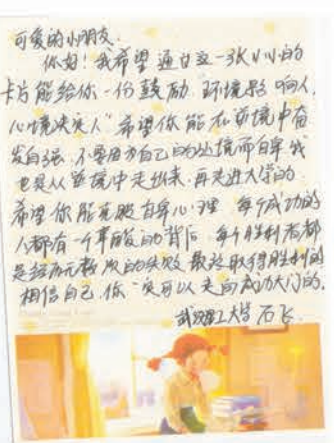 可爱的小朋友：
你好！我希望通过这一张小小的
卡片能给你一份鼓励．"环境影响人，
心境决定人"希望你能在逆境中奋
发自强，不要因为自己的处境而自卑，我
也是从逆境中走出来，再走进大学的
希望你能克服自卑心理，每个成功的
人都有一个辛酸的背后，每个胜利者都
是经历无数次的失败，最终取得胜利的
相信自己，你一定可以走向成功大门的．
武汉理工大学 石飞